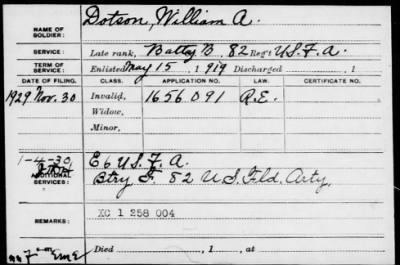 NAME OF SOLDIER: Dotson, William A.
SERVICE: Late rank, Batty B, 82 Reg't U.S.F.A.
TERM OF SERVICE: Enlisted May 15, 1919 Discharged , 1
DATE OF FILING. CLASS. APPLICATION NO. LAW. CERTIFICATE NO.
1929 Nov. 30 Invalid, 1656091 R.E.
Widow,
Minor,
1-4-30 E 6 U.S.F.A.
ADDITIONAL SERVICES: Btry F. 82 U.S. Fld. Arty.
REMARKS: XC 1 258 004
Died , 1 , at